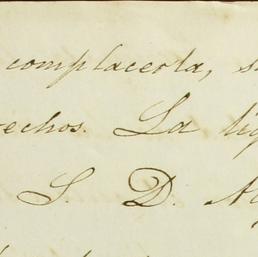 complacerla, s
echos. La lig
S. D. N